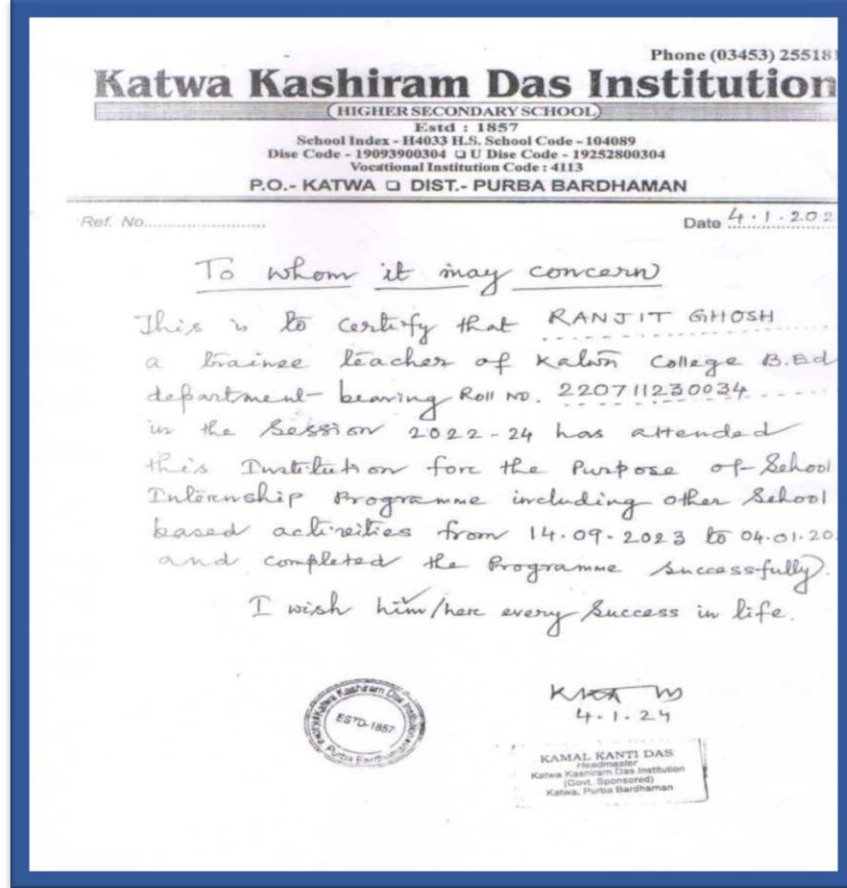 Phone (03453) 25518
Katwa Kashiram Das Institution
(HIGHER SECONDARY SCHOOL)
Estd : 1857
School Index - H4033 H.S. School Code - 104089
Dise Code - 19093900304 ❑ U Dise Code - 19252800304
Vocational Institution Code : 4113
P.O.- KATWA ❑ DIST.- PURBA BARDHAMAN
Ref. No......................
Date 4.1.202
To whom it may concern
This is to certify that RANJIT GHOSH
a trainee teacher of Katwa College B.Ed
department bearing Roll No. 220711230034
in the Session 2022-24 has attended
this Institution fore the Purpose of School
Internship Programme including other School
based activities from 14.09.2023 to 04.01.20
and completed the Programme successfully.
I wish him/here every success in life.
Katwa Kashiram Das Institution
ESTD-1857
Purba Bardhaman
4.1.24
KAMAL KANTI DAS
Headmaster
Katwa Kashiram Das Institution
(Govt. Sponsored)
Katwa, Purba Bardhaman